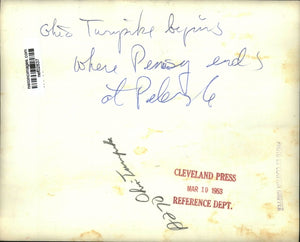 Ohio Turnpike begins
where Penny ends
at Peters
CLEVELAND PRESS
MAR 19 1953
REFERENCE DEPT.
Ohio Turnpike